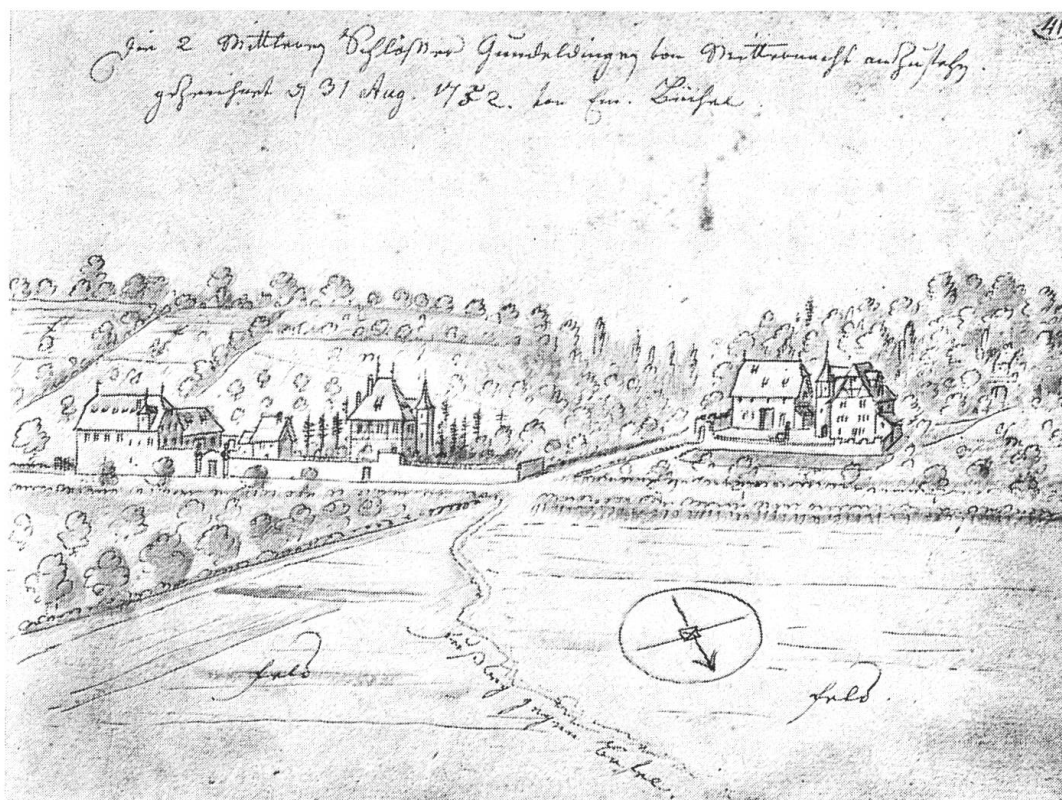 Die 2 Mittleren Schlösser Gundeldingen von Mitternacht anzusehn.
gezeichnet d 31 Aug. 1752. von Em. Büchel.
feld
fußweg gegen Basel.
feld.